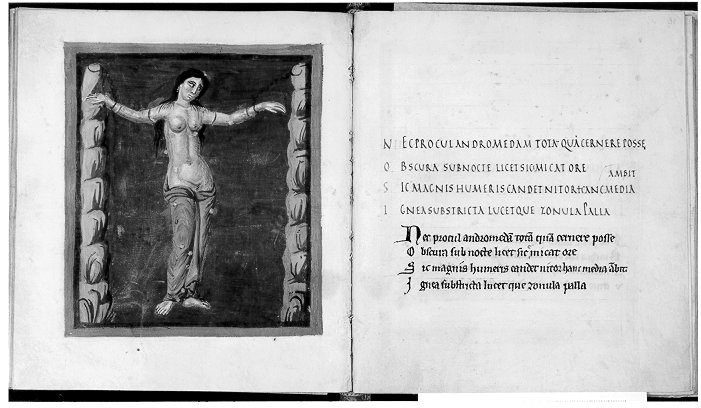 NEC PROCUL ANDROMEDAM TOTA QUÀ CERNERE POSSE
OBSCURA SUB NOCTE LICET SIC MICAT ORE
AMBIT
SIC MAGNIS HUMERIS CANDET NITOR HANC MEDIA
IGNEA SUBSTRICTA LUCET QUE ZONULA PALLA
Nec procul andromedā totā quā cernere posse
Obscura sub nocte licet sic micat ore
Sic magnis humeris candet nitor hanc media ābit
Ignea substricta lucet que zonula palla